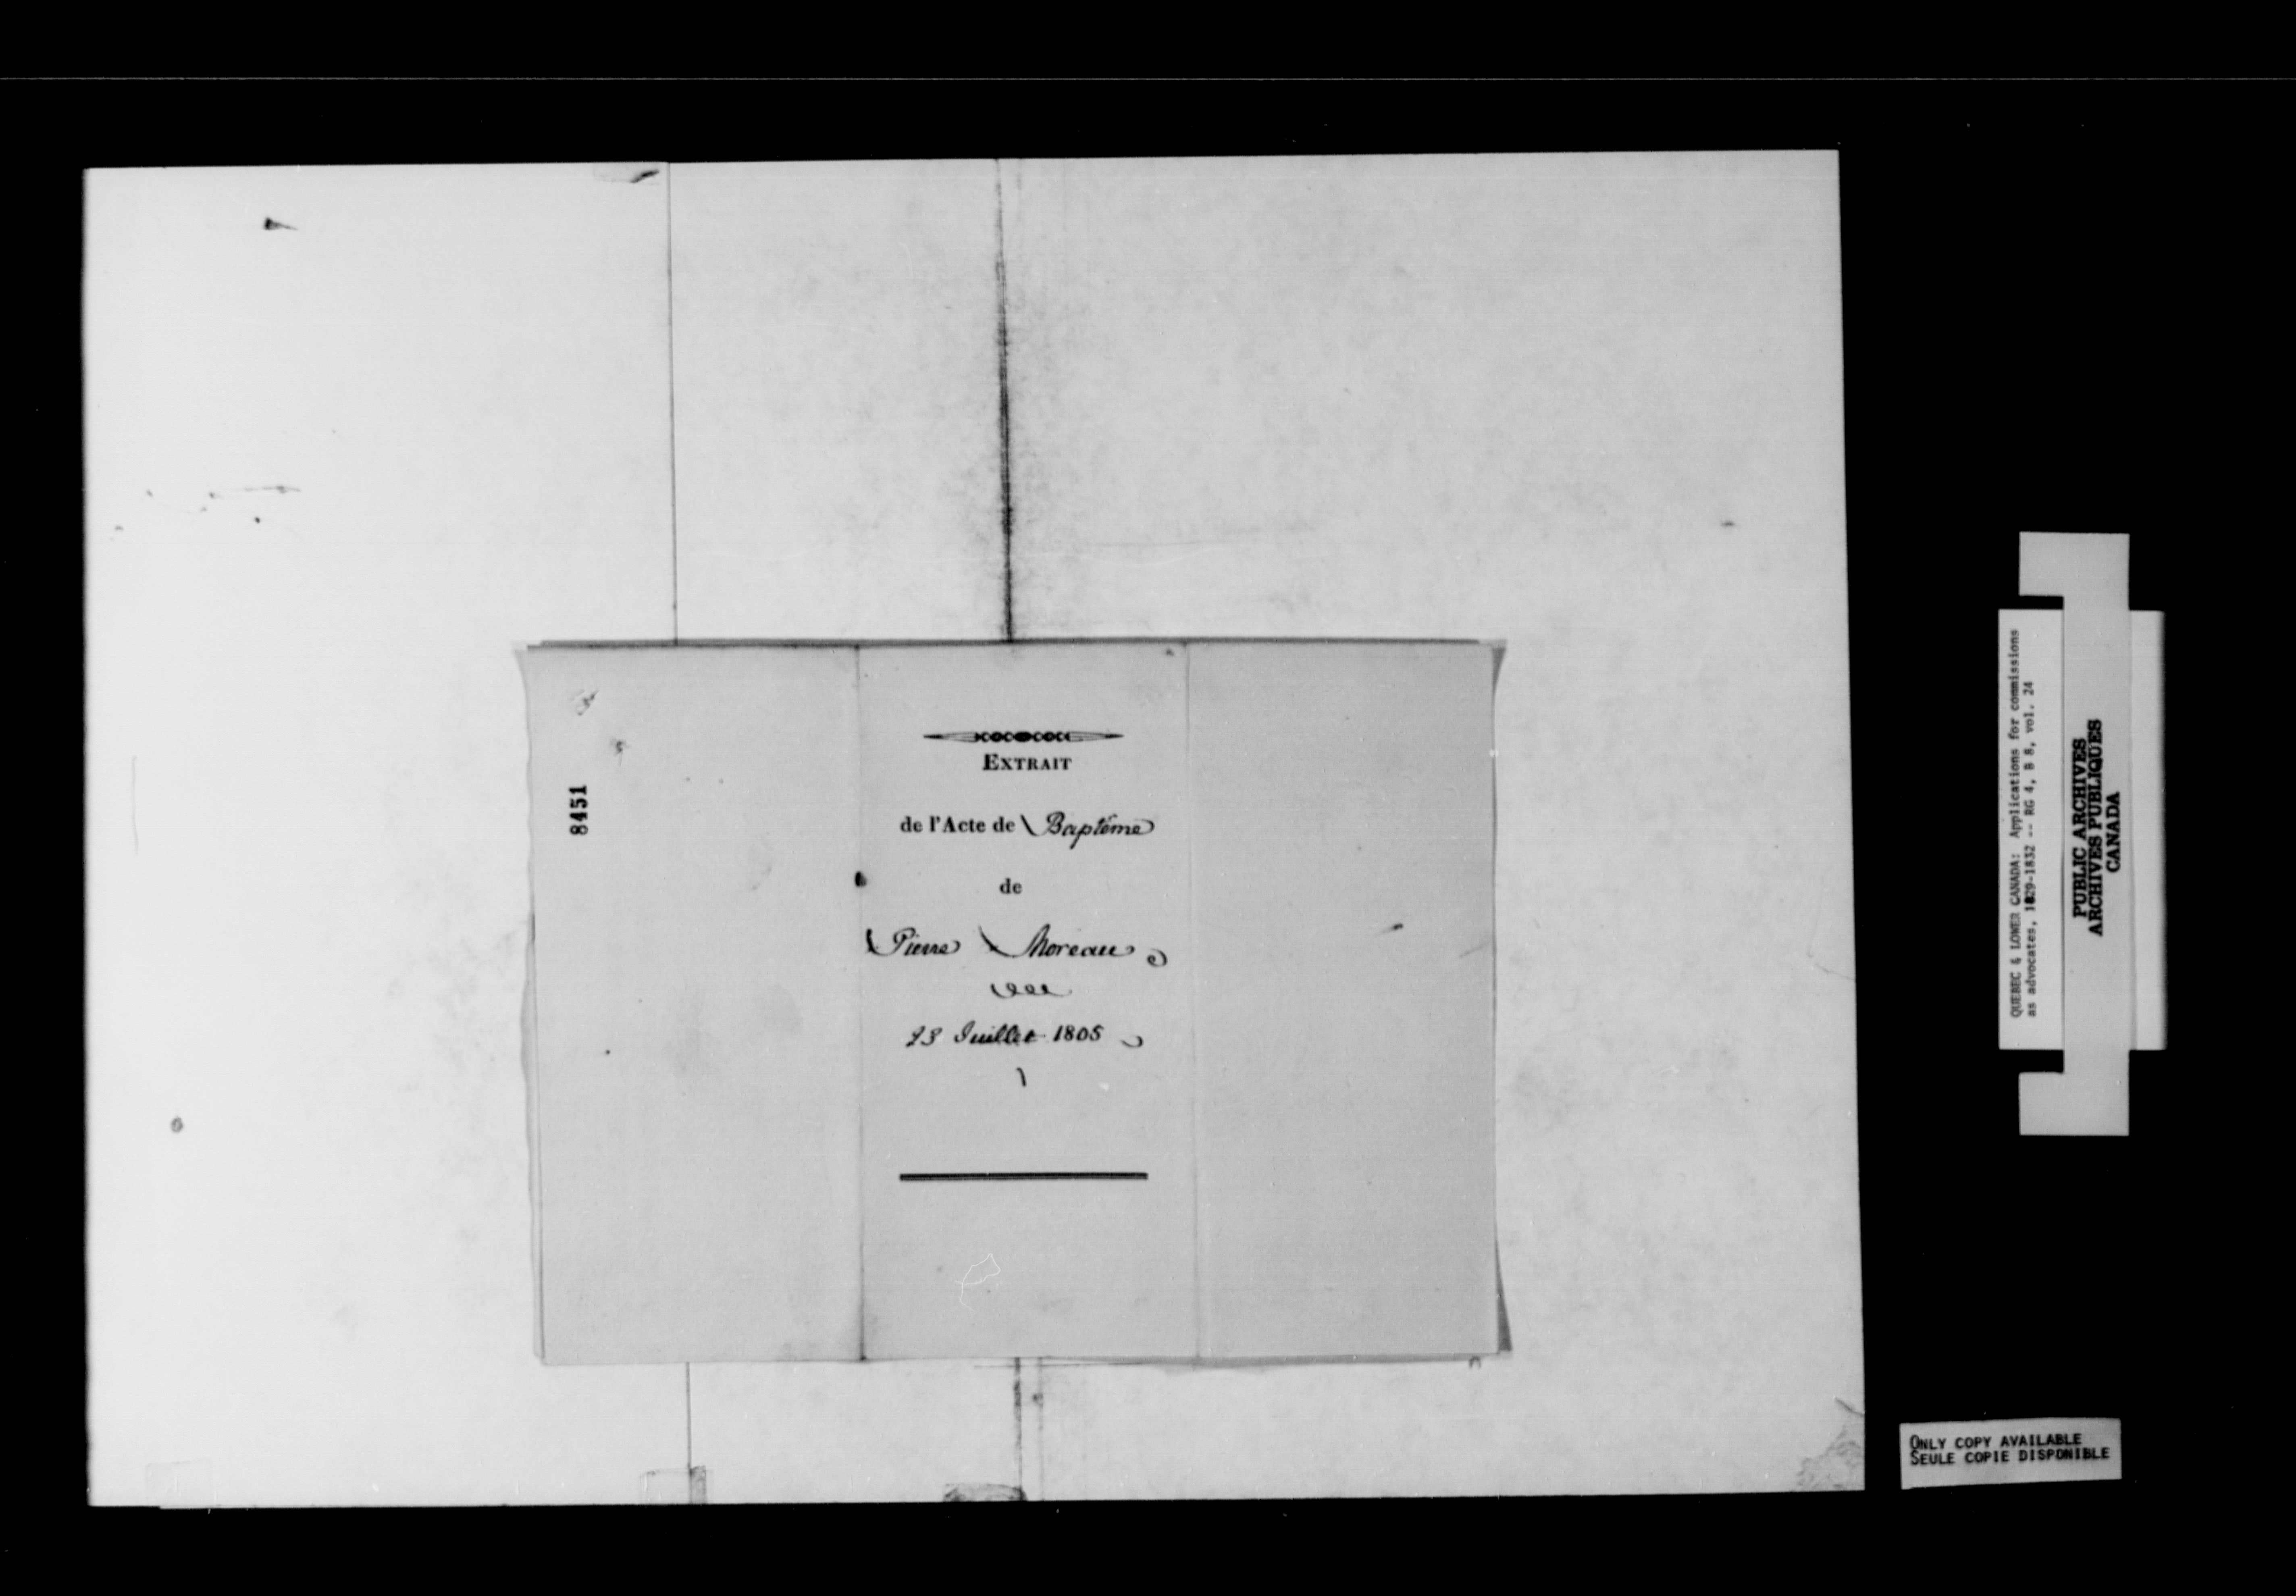 8451
EXTRAIT
de l'Acte de Baptême
de
Pierre Moreau
Juillet 1805
QUEBEC & LOWER CANADA: Applications for commissions
as advocates, 1829-1832 -- RG 4, B 8, vol. 24
PUBLIC ARCHIVES
ARCHIVES PUBLIQUES
CANADA
ONLY COPY AVAILABLE
SEULE COPIE DISPONIBLE